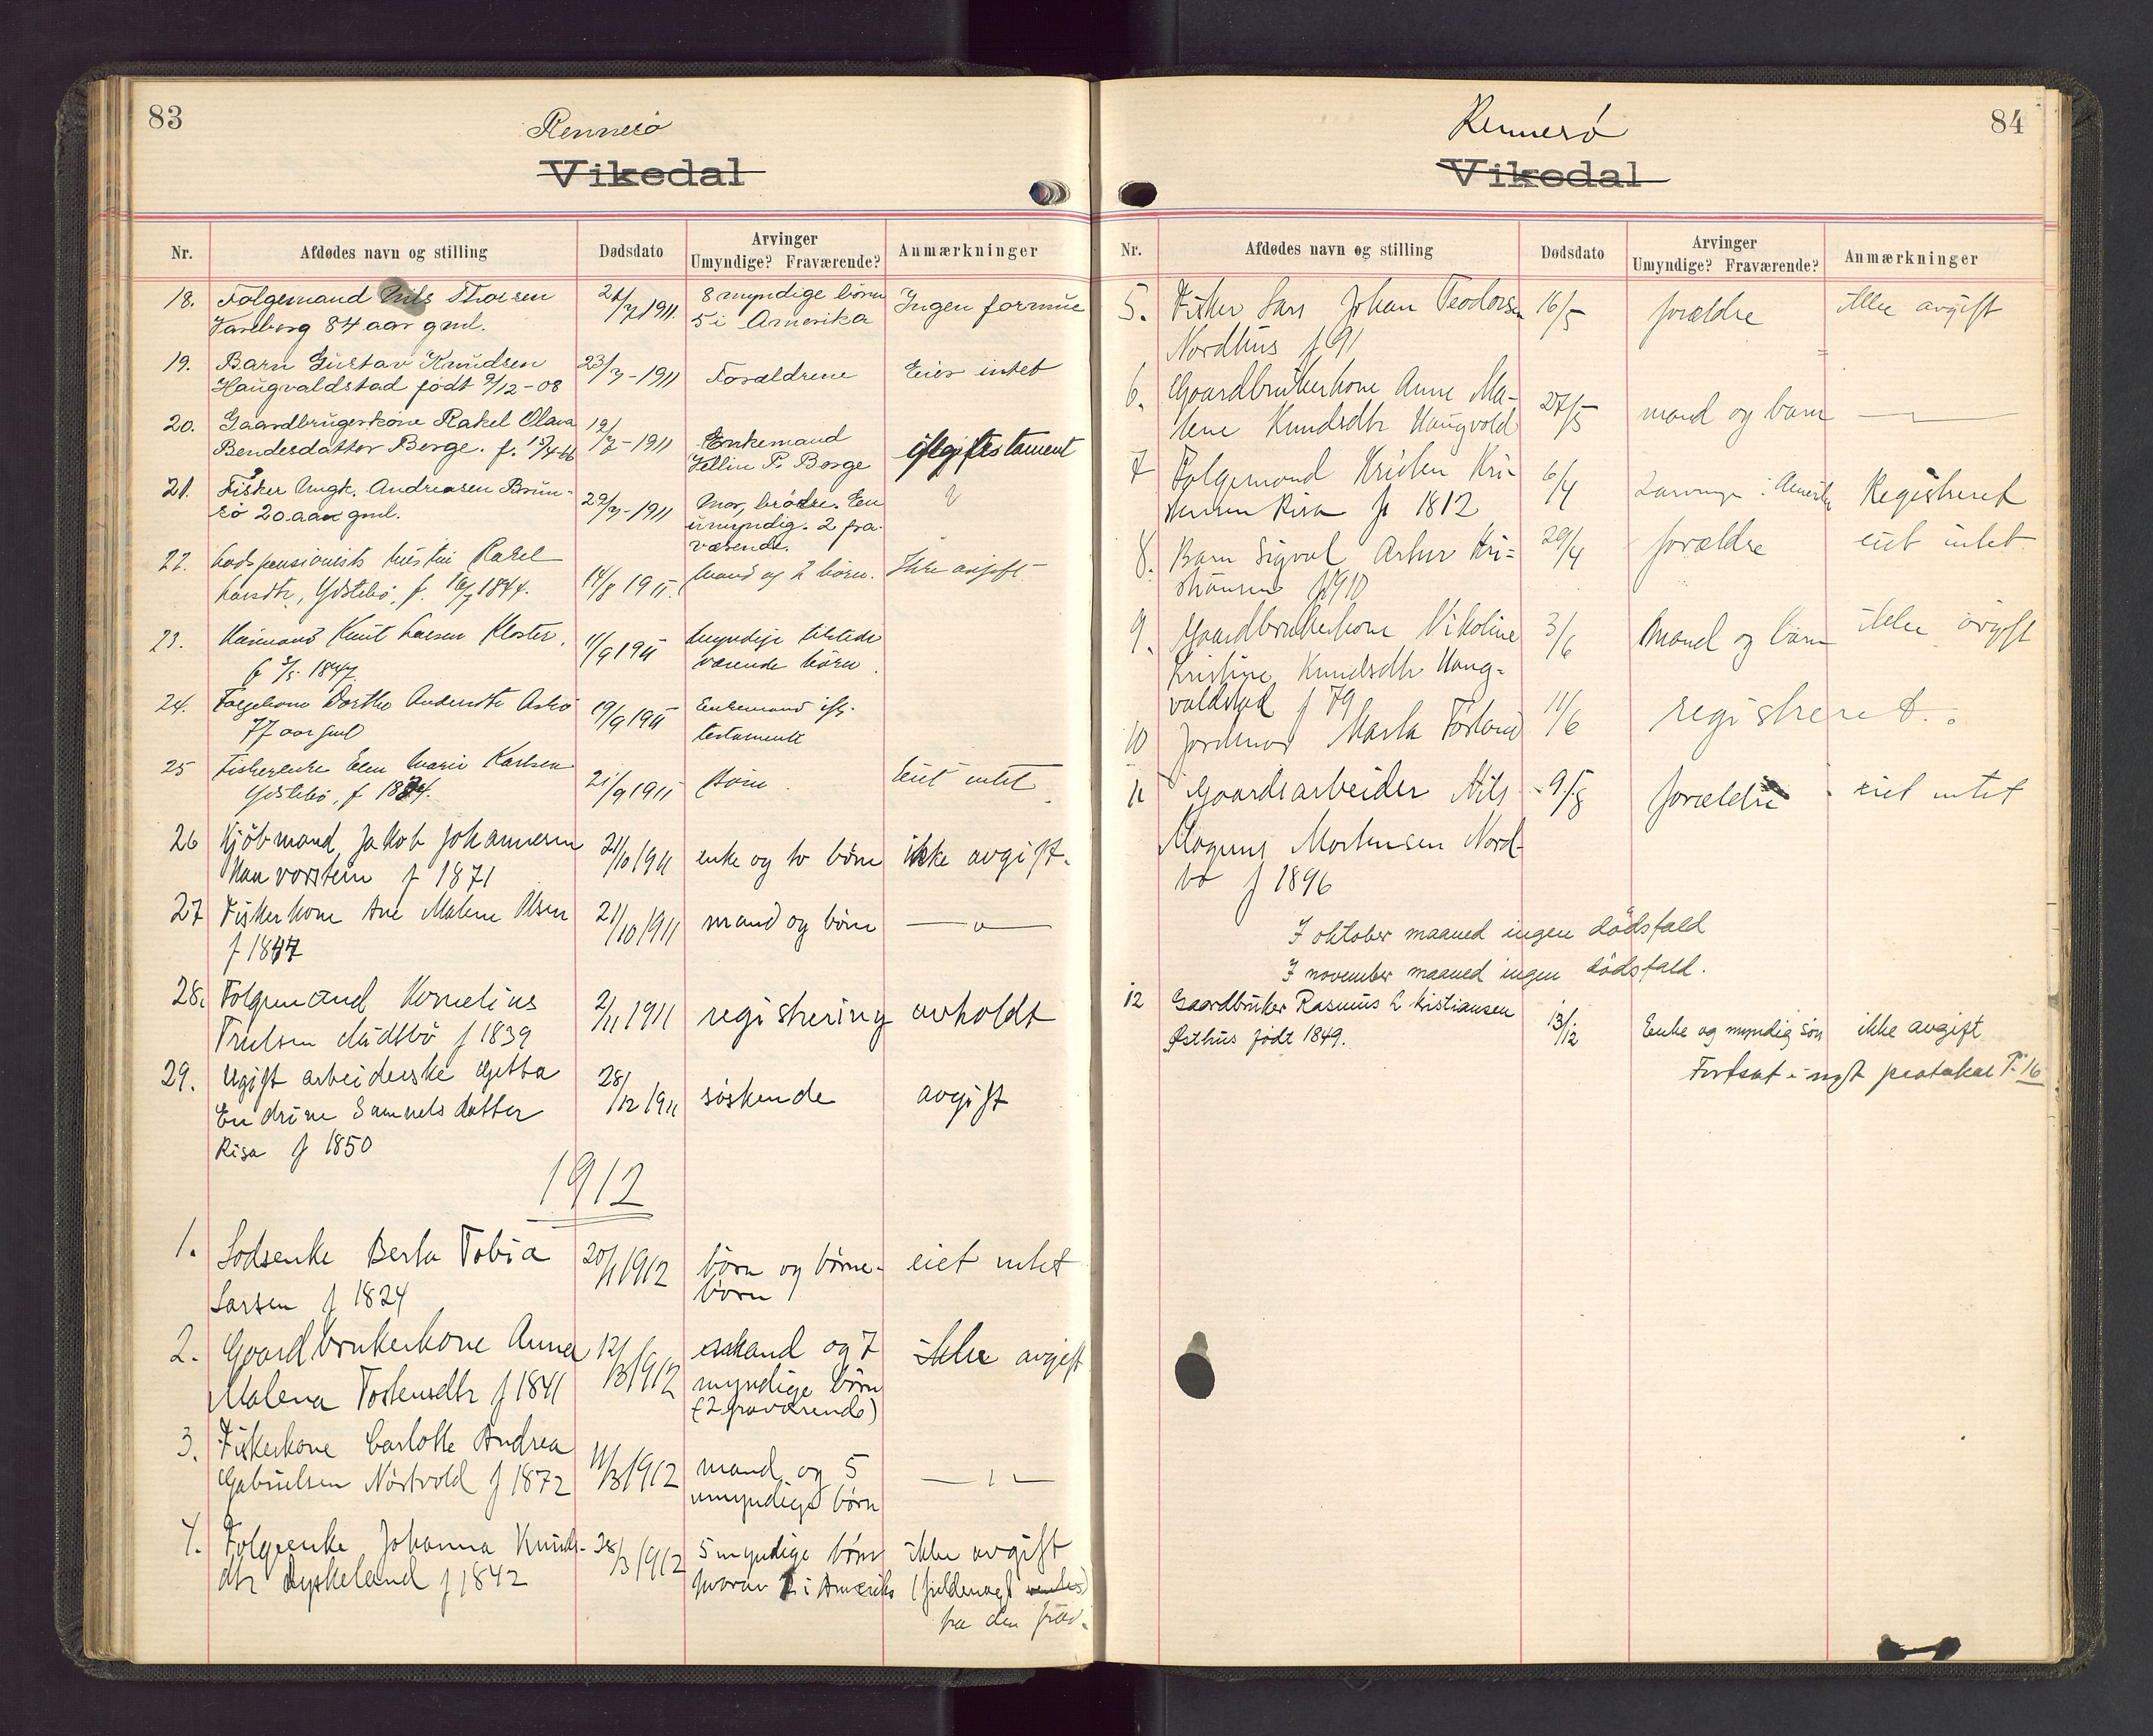 83
Rennesø
Vikedal
Nr.
Afdødes navn og stilling
Dødsdato
Arvinger
Umyndige? Fraværende?
Anmærkninger
18. Folgemand Nils Thorsen
8 myndige børn Ingen formue
Varaberg 84 aar gml.
5 i Amerika
19. Barn Gustav Knudsen
23/7-1911 Forældrene Eier intet
Haugvaldstad født 9/12-08
20. Gaardbrugerkone Rakel Olava
Bendesdatter Berge. f. 15/4-66
Enkemand
P. Berge
21. Fisker Ungk. Andreasen Brun-
29/7-1911 Mor, brødre. En
sø 20 aar gml.
umyndig. 2 fra-
værende.
22. Lodspensionists hustru Rakel
14/8 1911. Mand og 2 børn. Ikke avgift
Larsdtr, Ydstebø, f. 1844.
23. Kaarmand Knut Larsen Kloster,
11/9 1911 Myndige tilstede
værende børn.
f 1847
24. Folgekone Dorthe Andersdtr Askø
19/9 1911 Enkemand ifg.
77 aar gml
testamente
25 Fiskerenke Elen Marie Karlsen
21/9 1911 Børn Eiet intet
Ydstebø, f
26 Kjøbmand Jakob Johannesen
21/10 1911 enke og to børn ikke avgift.
f 1871
27 Fiskerkone Ane Malene Olsen
21/10 1911 mand og børn —„—
f 1847
28. Folgemand Kornelius
2/11 1911 registrering avholdt
f 1839
29. Ugift arbeiderske Gjetta
28/12 1911 søskende avgift
Endrine Samuelsdatter
Risa f 1850
1912
1. Lodsenke Berta Tobia
20/1 1912 børn og børne- eiet intet
Larsen f 1824
børn
2. Gaardbrukerkone Anna
12/3 1912 mand og 7 ikke avgift
Malena Tostensdtr f 1841
myndige børn
(2 fraværende)
3. Fiskerkone Carlotte Andrea
11/3 1912 mand og 5 —„—
Gabrielsen Nørtvold f 1872
umyndige børn
4. Folgeenke Johanna Knuds-
28/3 1912 5 myndige børn ikke avgift
dtr Dyskeland f 1842
hvorav i Amerika (fuldmagt ventes)
fra den frav.
84
Rennesø
Vikedal
Nr.
Afdødes navn og stilling
Dødsdato
Arvinger
Umyndige? Fraværende?
Anmærkninger
5. Fisker Lars Johan Teodorsen
16/5 forældre ikke avgift
Nordhus f 91
6. Gaardbrukerkone Anne Ma-
27/5 mand og barn —„—
lene Knudsdtr Haugvold
7 Folgemand Kristen Kri-
6/4 2 arvinger i Amerika Registreret
stensen Risa f. 1812
8. Barn Sigval Artur Kri-
29/4 forældre eiet intet
stiansen f 1910
9. Gaardbrukerkone Nikoline
3/6 Mand og barn ikke avgift
Kristine Knudsdtr Haug-
valdstad f 79
10 Jordmor Marta Førland
11/6 registreret.
11 Gaardsarbeider Nils
9/8 forældre eiet intet
Magnus Mortensen Nord-
bø f 1896
I oktober maaned ingen dødsfald
I november maaned ingen dødsfald.
12 Gaardbruker Rasmus L Kristiansen
13/12 Enke og myndig søn ikke avgift
Østhus født 1849.
Fortsat i nyt protokol P. 16